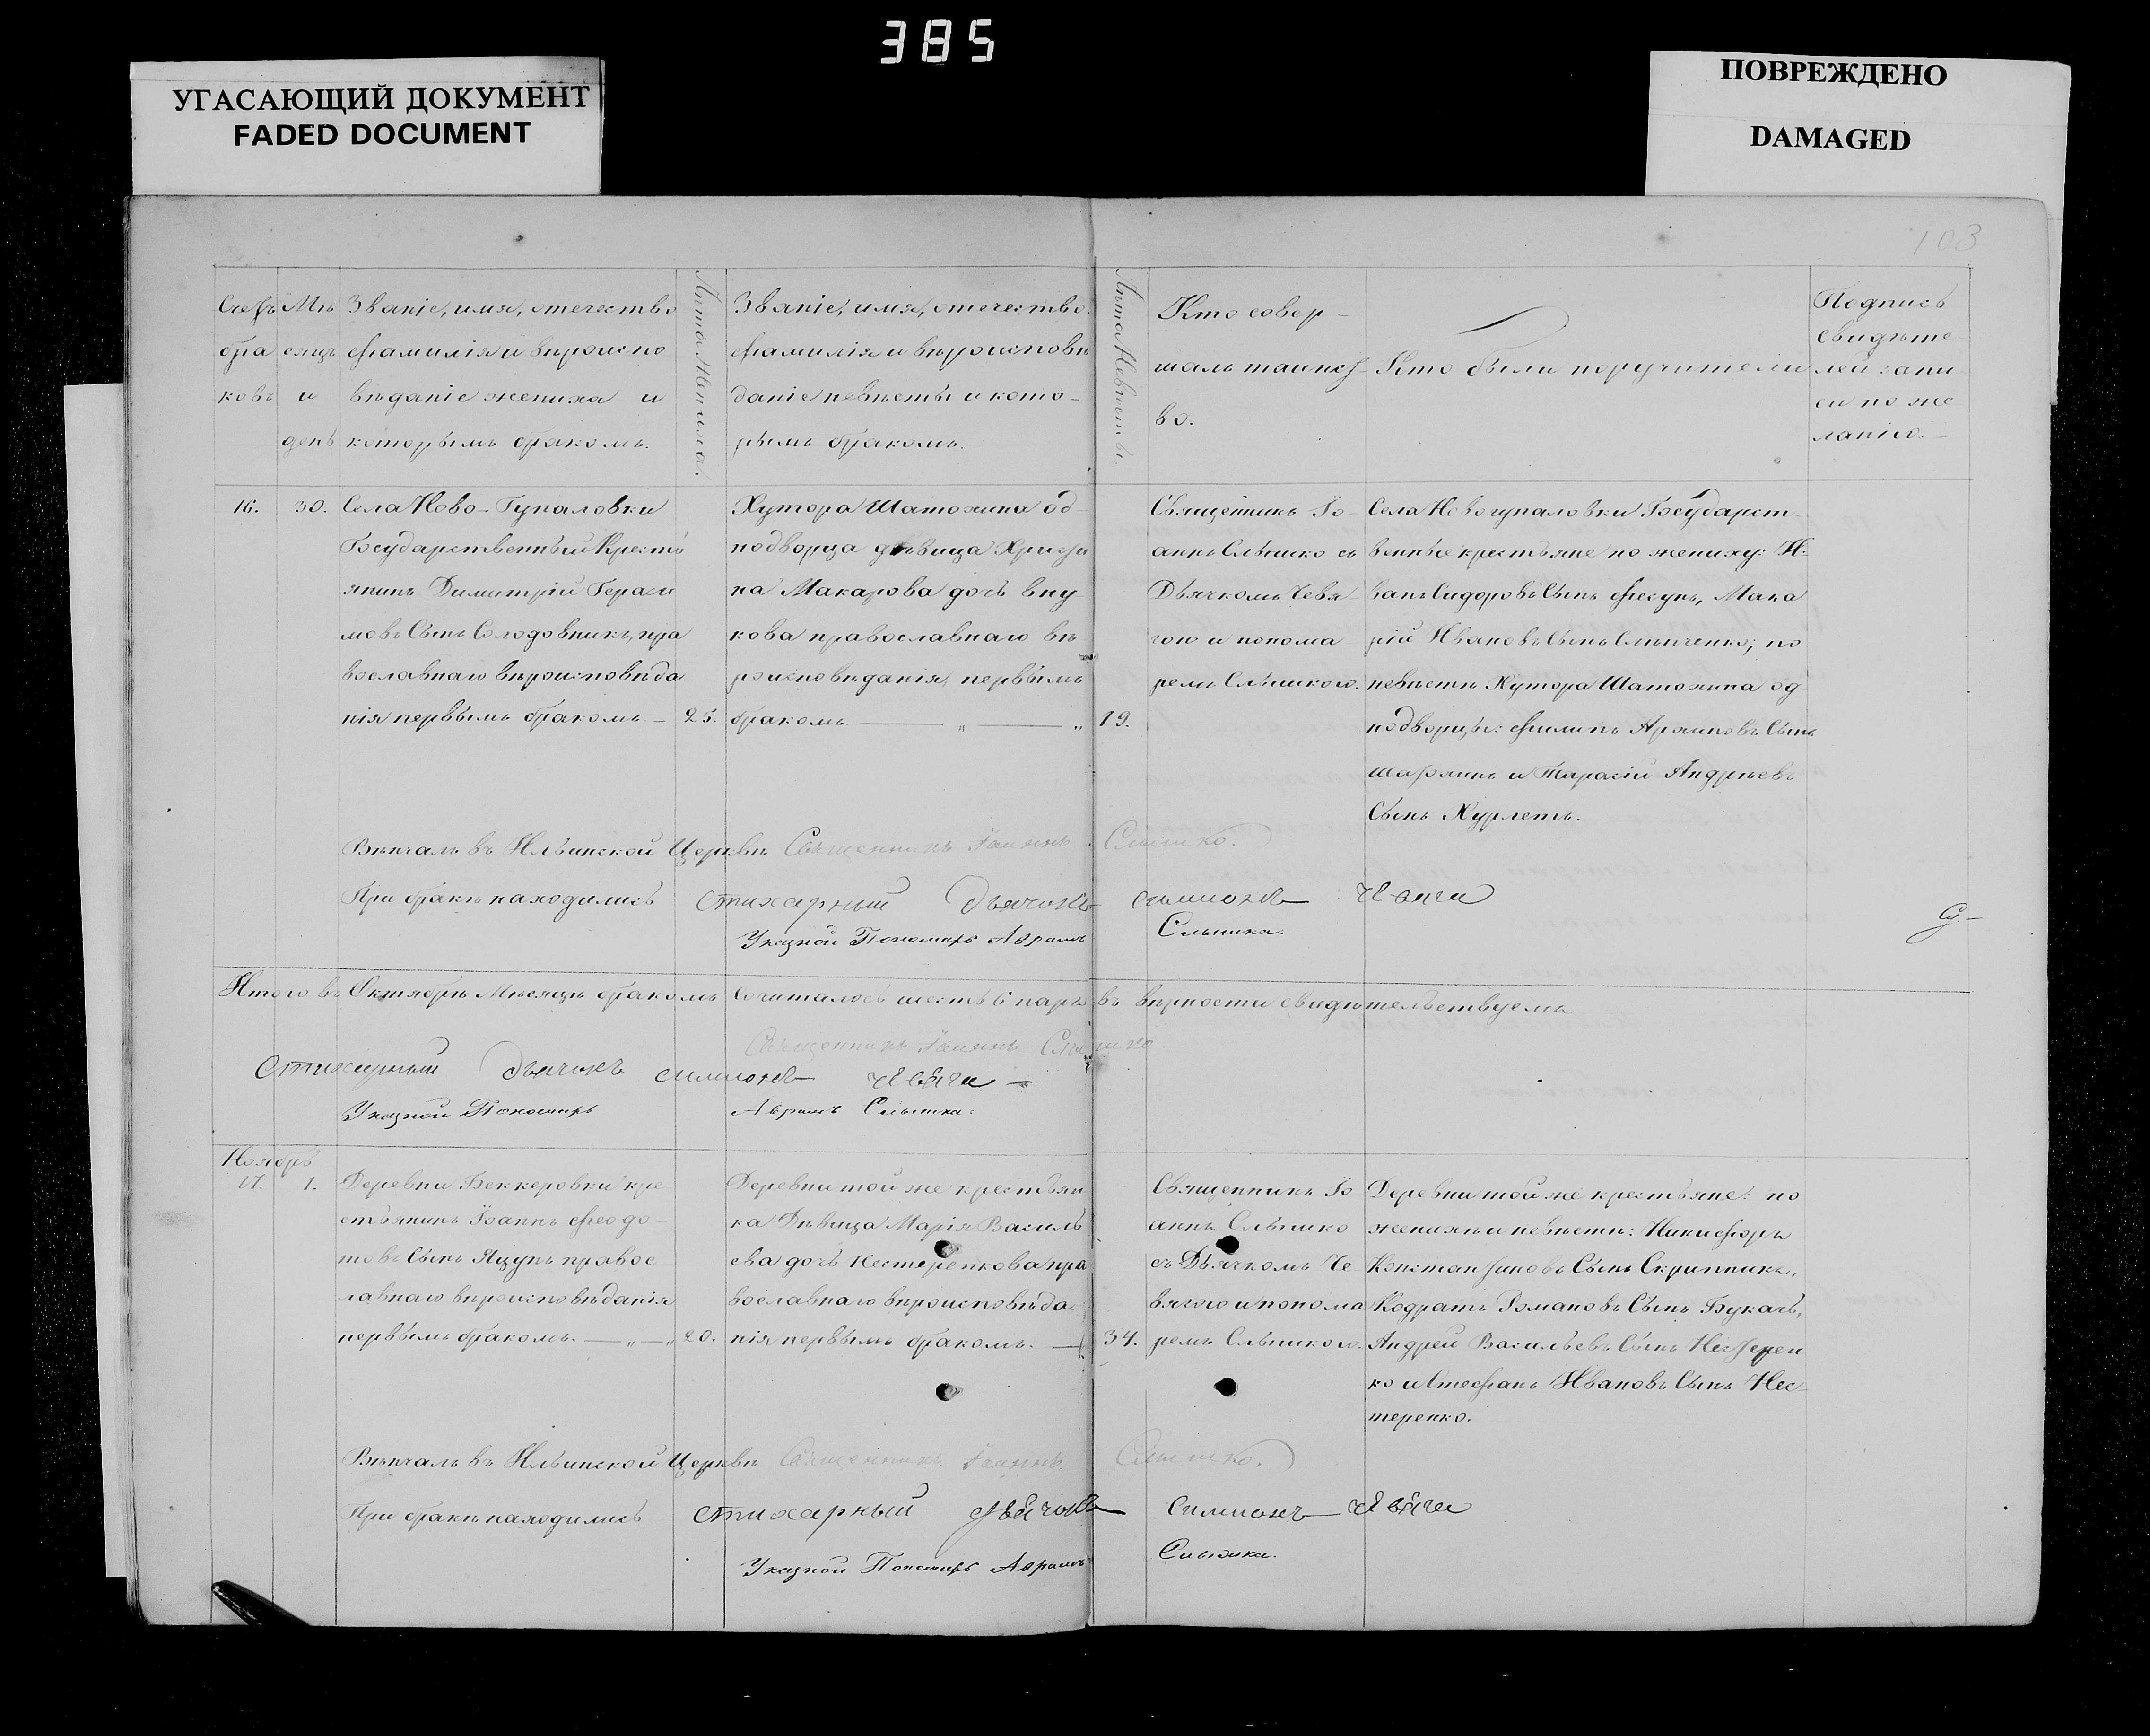 385
УГАСАЮЩИЙ ДОКУМЕНТ
FADED DOCUMENT
ПОВРЕЖДЕНО
DAMAGED
103
Счетъ
бра
ковъ
Мѣ
сяцъ
и
день
Званіе, имя, отечество
фамилія и вѣроиспо
вѣданіе жениха и
которымъ бракомъ.
Лѣта Жениха.
Званіе, имя, отечество.
фамилія и вѣроисповѣ
даніе невѣсты и кото-
рымъ бракомъ.
Лѣта Невѣсты.
Кто совер-
шалъ таинст-
во.
Кто были поручители
Подпись
свидѣте
лей запи
си по же
ланію.
16.
30.
Села Ново-Гупаловки
Государственный Кресть
янинъ Димитрій Гераси
мовъ Сынъ Солодовникъ, пра
вославнаго вѣроисповѣда
нія первымъ бракомъ. —
25.
Хутора Шатохина од
нодворца дѣвица Христи
на Макарова дочь Вну
кова православнаго вѣ
роисповѣданія, первымъ
бракомъ.
19.
Священникъ Іо-
аннъ Слышко съ
Дьячкомъ Чевя
гою и понома
ремъ Слышкою.
Села Новогупаловки Государст-
венные крестьяне по жениху: И-
ванъ Сидоровъ Сынъ Фесунъ, Мака
рій Ивановъ Сынъ Слѣпченко; по
невѣстѣ Хутора Шатохина од
нодворцы: Филипъ Архиповъ Сынъ
и Тарасій Андрѣевъ
Сынъ Журлетъ.
Вѣнчалъ въ Ильинской Церквѣ Священникъ Іоаннъ Слышко.
При бракѣ находились стихарный дьячокъ симионъ чевяга
Указной Пономарь Аврамъ Слышка.
Итого въ Октябрѣ Мѣсяцѣ бракомъ Сочиталось шесть 6 паръ въ вѣрности свидѣтельствуемъ
Священникъ Іоаннъ Слышко.
Стихарный дьячокъ симионъ чевяга —
Указной Пономарь Аврамъ Слышка.
Ноябрь
17.
1.
Деревни Беккеровки кре
стьянинъ Іоаннъ Феодо-
товъ Сынъ Яцунъ правос
лавнаго вѣроисповѣданія
первымъ бракомъ.
20.
Деревни той же крестьян
ка Дѣвица Марія Василь
ева дочь Нестеренкова пра
вославнаго вѣроисповѣда-
нія первымъ бракомъ.
34.
Священникъ Іо
аннъ Слышко
съ Дьячкомъ Че
вягою и понома
ремъ Слышкою.
Деревни той же крестьяне: по
женихѣ и невѣстѣ: Никифоръ
Константиновъ Сынъ Скрипникъ,
Кодратъ Романовъ Сынъ Букачъ,
Андрей Васильевъ Сынъ Нестерен
ко и Стефанъ Ивановъ Сынъ Нес-
теренко.
Вѣнчалъ въ Ильинской Церквѣ Священникъ Іоаннъ Слышко.
При бракѣ находились стихарный дьячокъ Симионъ чевяга
Указной Пономарь Аврамъ Слышка.